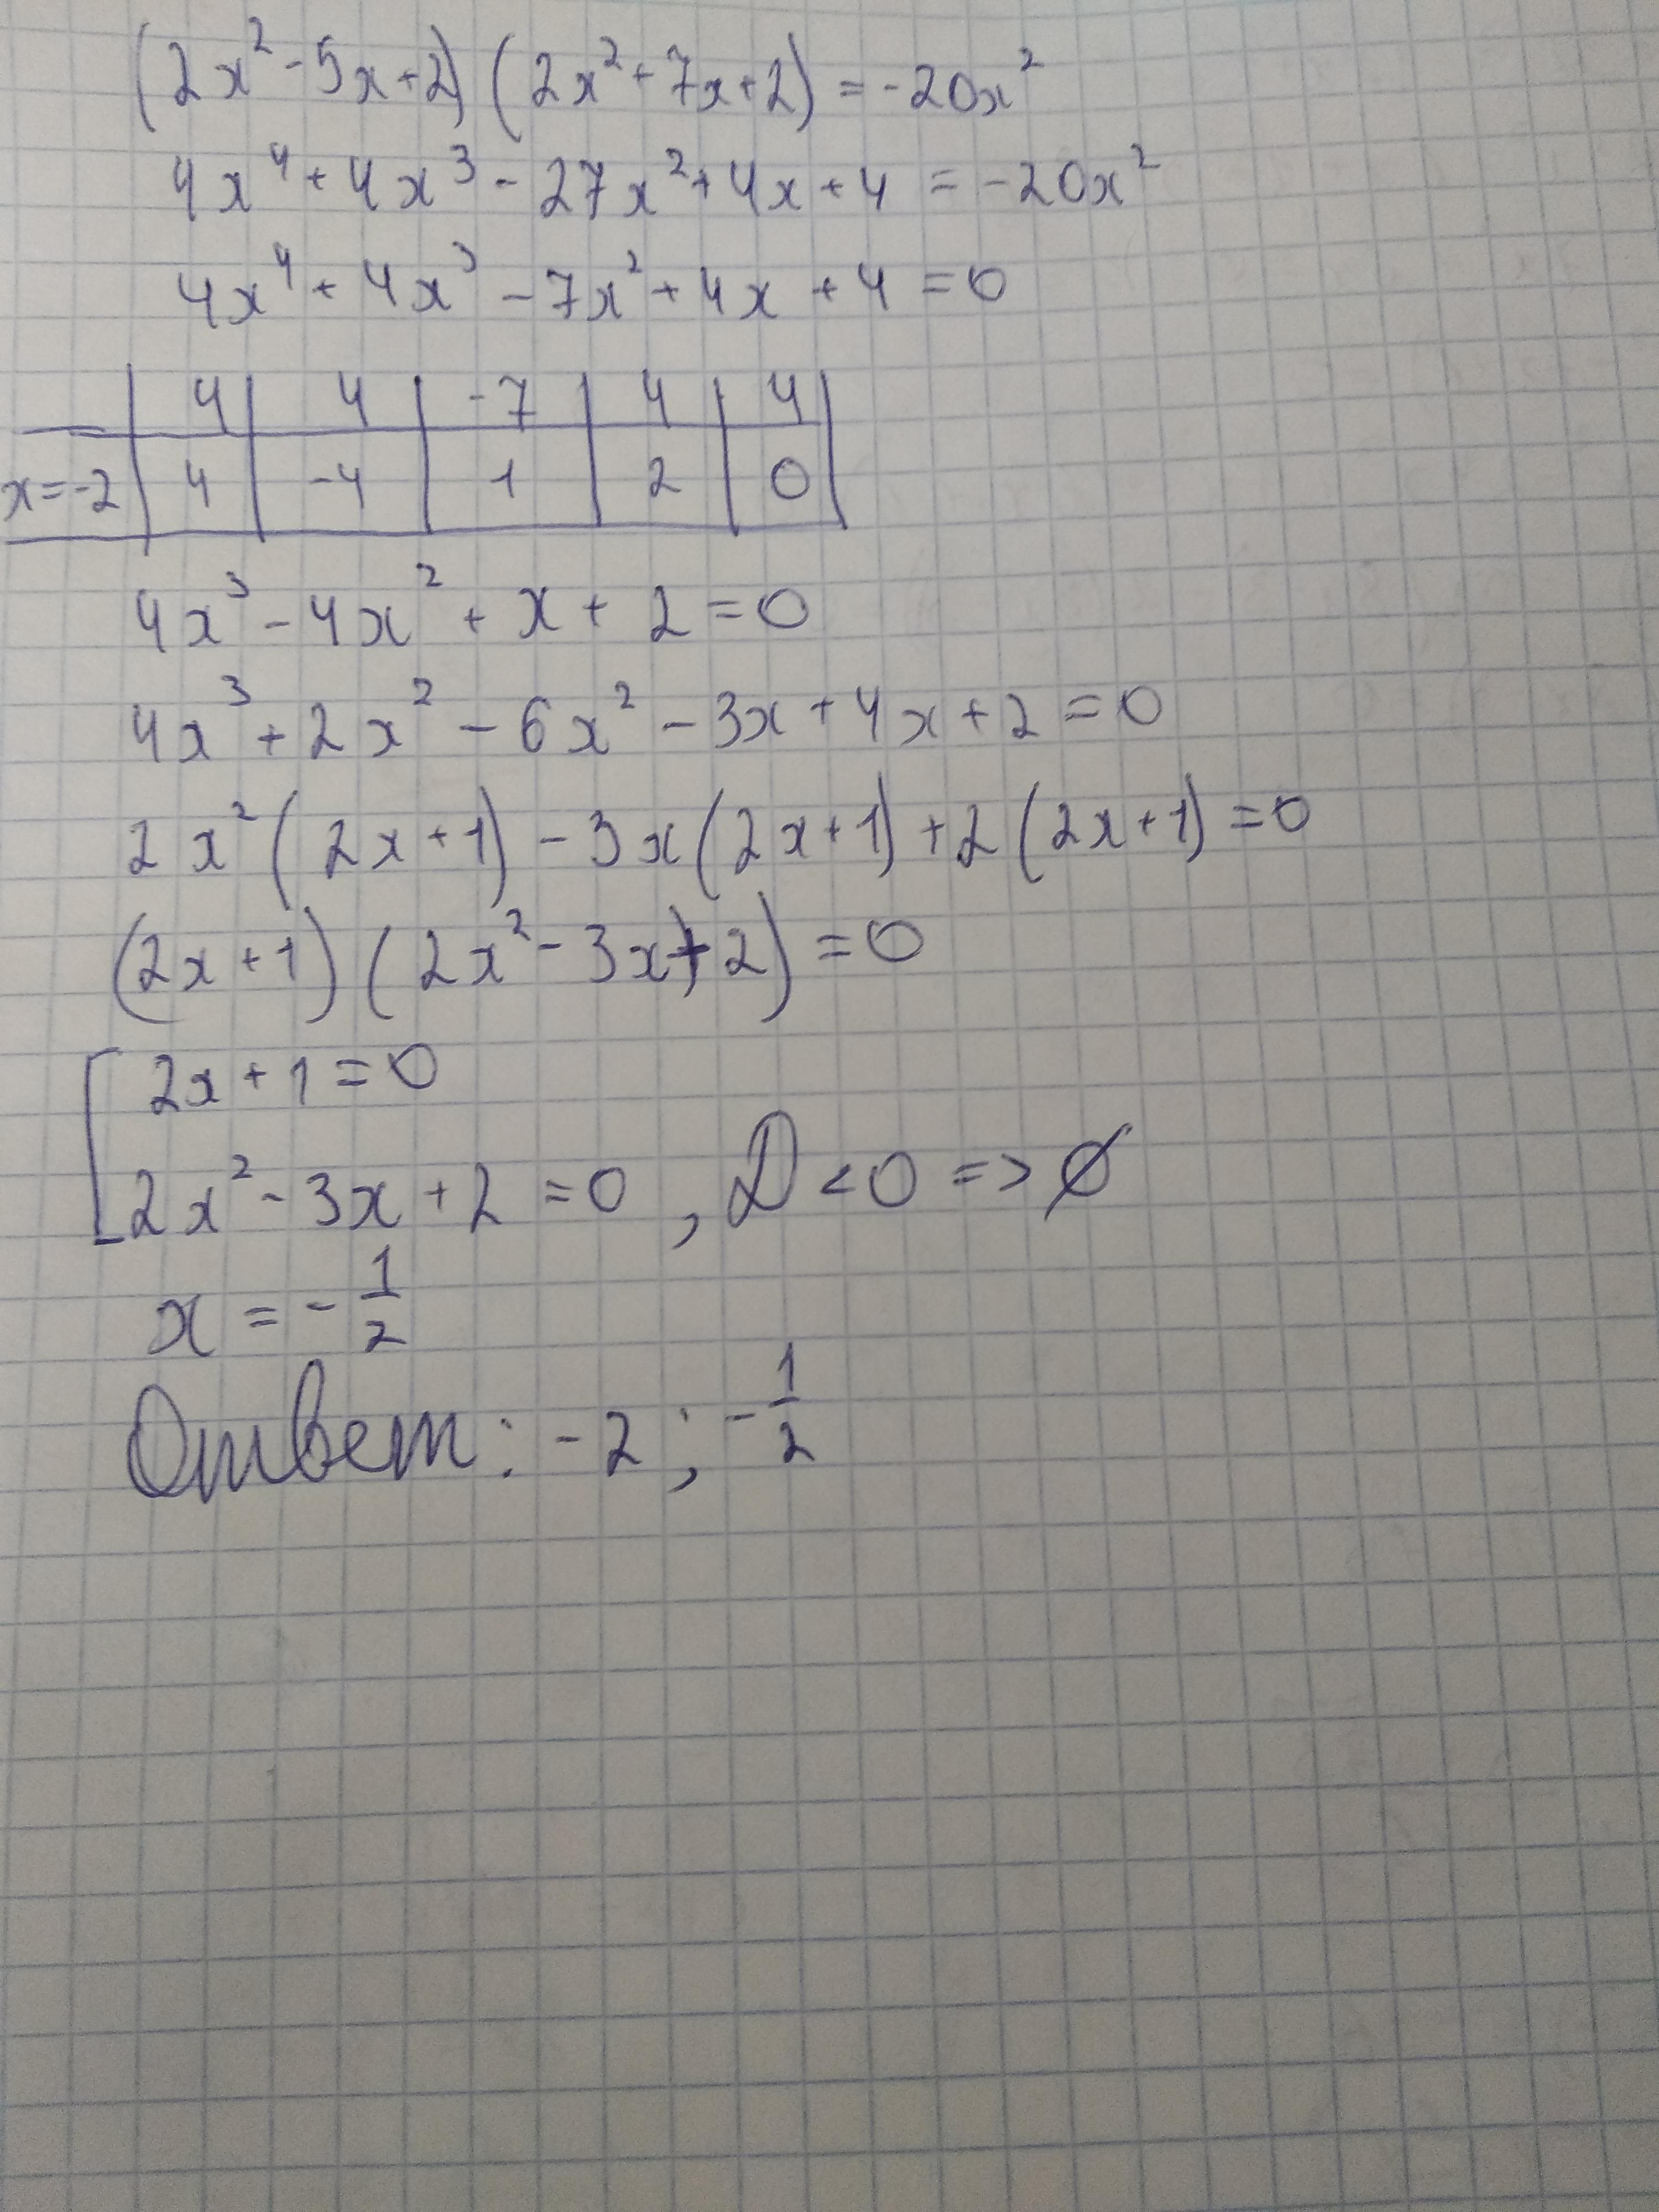 (2x² - 5x + 2)(2x² + 7x + 2) = -20x²
4x⁴ + 4x³ - 27x² + 4x + 4 = -20x²
4x⁴ + 4x³ - 7x² + 4x + 4 = 0
4 | 4 | -7 | 4 | 4
x = -2 | 4 | -4 | 1 | 2 | 0
4x³ - 4x² + x + 2 = 0
4x³ + 2x² - 6x² - 3x + 4x + 2 = 0
2x²(2x + 1) - 3x(2x + 1) + 2(2x + 1) = 0
(2x + 1)(2x² - 3x + 2) = 0
2x + 1 = 0
2x² - 3x + 2 = 0, D < 0 => ∅
x = -1/2
Ответ: -2; -1/2